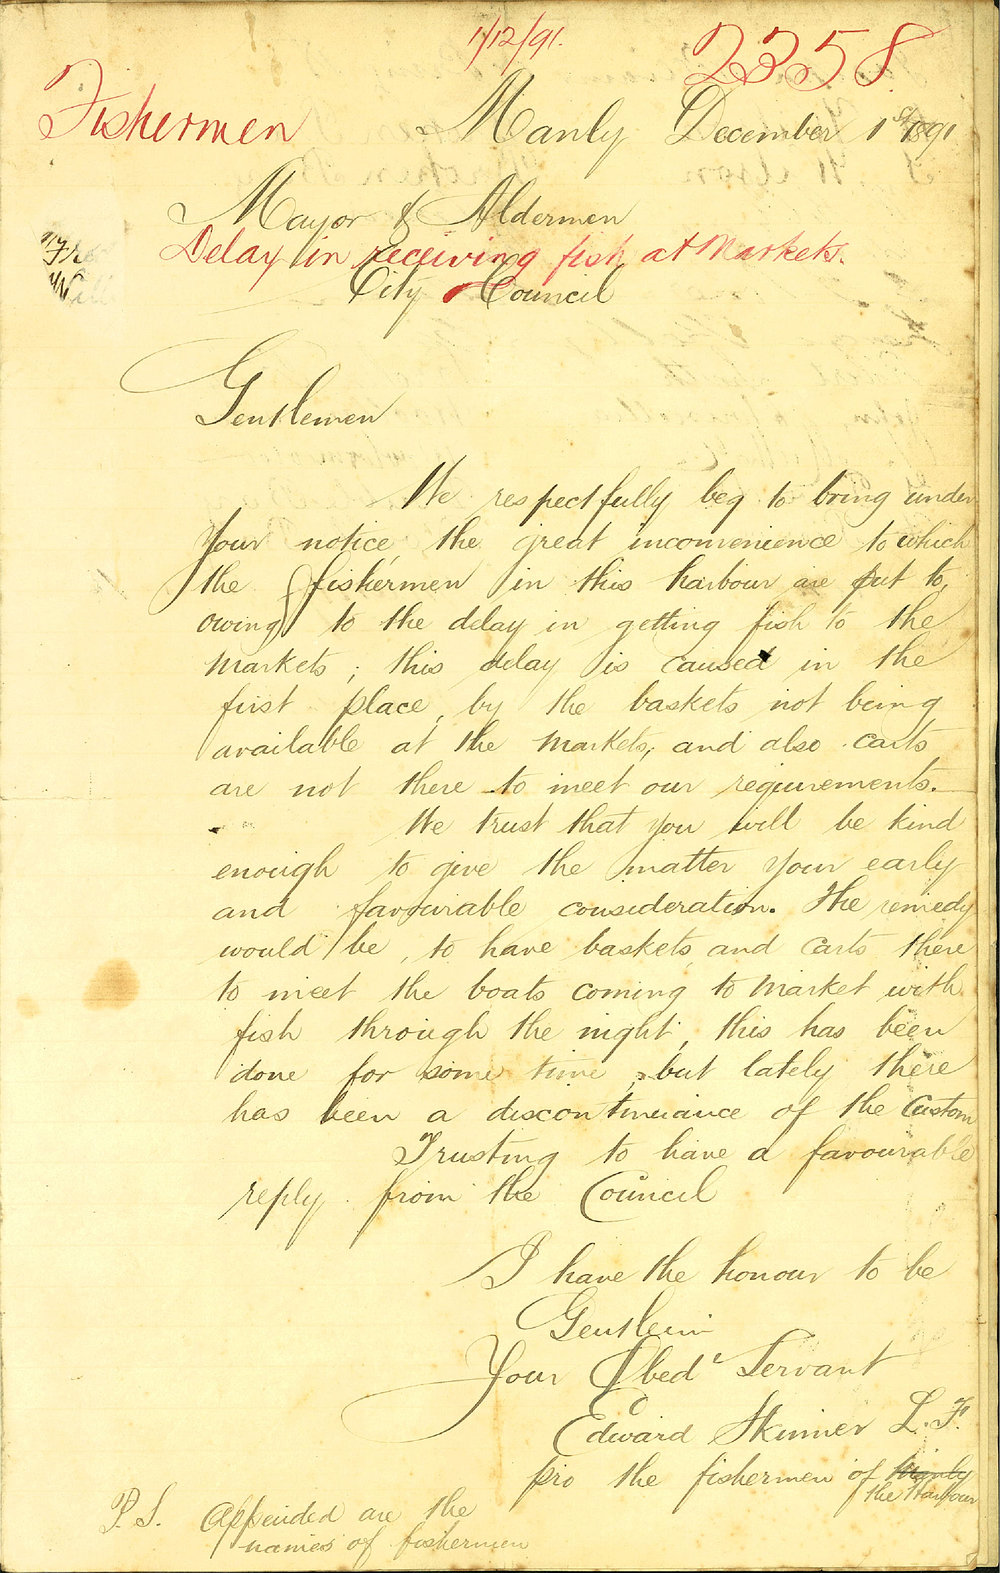 1/12/91.
2358
Fishermen
Manly December 1st 1891
Mayor & Aldermen
Delay in receiving fish at Markets.
City Council
Gentlemen
We respectfully beg to bring under
Your notice, the great inconvenience to which
the fishermen in this harbour are put to,
owing to the delay in getting fish to the
Markets; this delay is caused in the
first place, by the baskets not being
available at the Markets, and also carts
are not there to meet our requirements.
We trust that you will be kind
enough to give the matter your early
and favourable consideration. The remedy
would be, to have baskets and carts there
to meet the boats coming to Market with
fish through the night, this has been
done for some time, but lately there
has been a discontinuance of the Custom
Trusting to have a favourable
reply from the Council
I have the honour to be
Gentlemen
Your Obedt Servant
Edward Skinner L. F.
pro the fishermen of Manly
the Harbour
P.S. Appended are the
names of fishermen